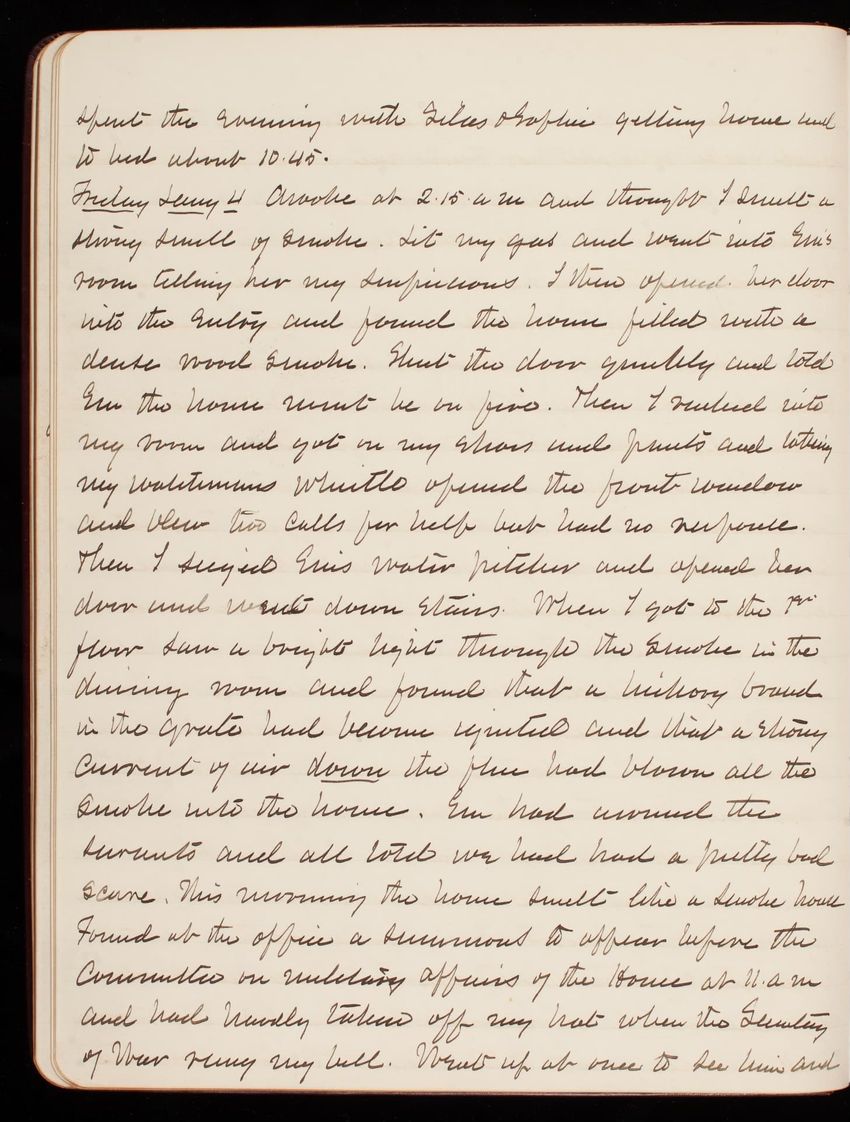 spent the evening with Gilles & Sophie getting home and
to bed about 10.45.
Friday Jany 4 Awoke at 2.15 a m and thought I smelt a
strong smell of smoke. Lit my gas and went into Em's
room telling her my suspicions. I then opened her door
into the Entry and found the house filled with a
dense wood smoke. Shut the door quickly and told
Em the house must be on fire. Then I rushed into
my room and got on my shoes and pants and taking
my watchmans whistle opened the front window
and blew two calls for help but had no response.
Then I seized Em's water pitcher and opened her
door and went down stairs. When I got to the 1st
floor saw a bright light through the smoke in the
dining room and found that a hickory brand
in the grate had become ignited and that a strong
current of air down the flue had blown all the
smoke into the house. Em had aroused the
servants and all told we had had a pretty bad
scare. This morning the house smelt like a smoke house
Found at the office a summons to appear before the
Committee on military affairs of the House at 11. a m
and had hardly taken off my hat when the Secretary
of War rung my bell. Went up at once to see him and